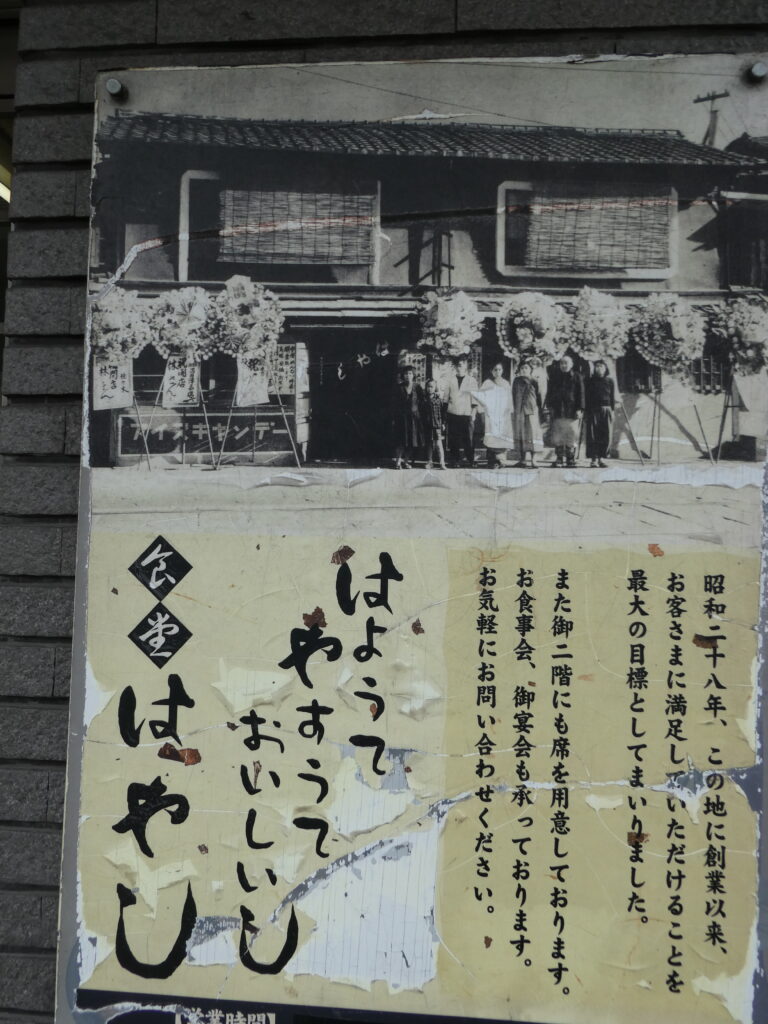 はやし
アイスキャンデー
昭和二十八年、この地に創業以来、
お客さまに満足していただけることを
最大の目標としてまいりました。
また御二階にも席を用意しております。
お食事会、御宴会も承っております。
お気軽にお問い合わせください。
はようて
やすうて
おいしいし
食堂
はやし
【営業時間】